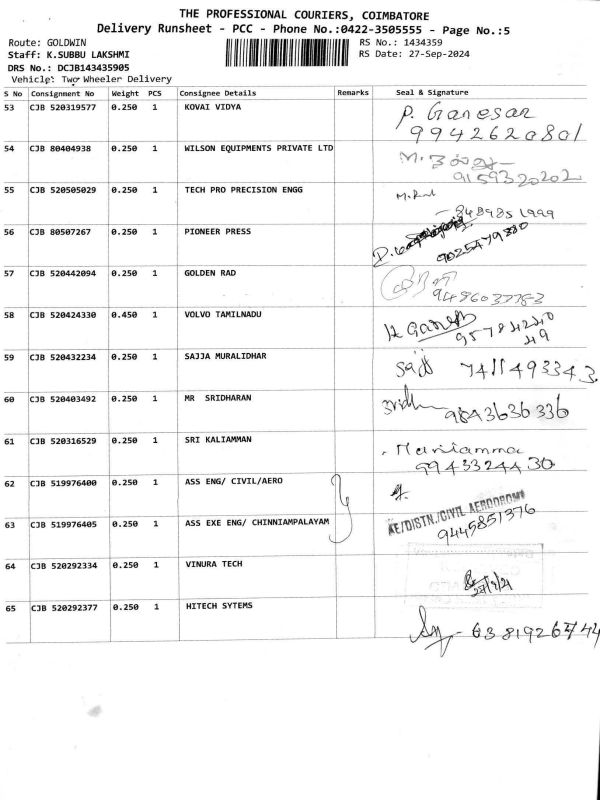 THE PROFESSIONAL COURIERS, COIMBATORE
Delivery Runsheet - PCC - Phone No.:0422-3505555 - Page No.:5
Route: GOLDWIN RS No.: 1434359
Staff: K.SUBBU LAKSHMI RS Date: 27-Sep-2024
DRS No.: DCJB143435905
Vehicle: Two Wheeler Delivery
S No Consignment No Weight PCS Consignee Details Remarks Seal & Signature
53 CJB 520319577 0.250 1 KOVAI VIDYA P. Ganesar
9942620801
54 CJB 80404938 0.250 1 WILSON EQUIPMENTS PRIVATE LTD
9159320202
55 CJB 520505029 0.250 1 TECH PRO PRECISION ENGG
8489851999
56 CJB 80507267 0.250 1 PIONEER PRESS
9025479380
57 CJB 520442094 0.250 1 GOLDEN RAD
9496037783
58 CJB 520424330 0.450 1 VOLVO TAMILNADU Ganesh
95784240
49
59 CJB 520432234 0.250 1 SAJJA MURALIDHAR 7411493343
60 CJB 520403492 0.250 1 MR SRIDHARAN 9843636336
61 CJB 520316529 0.250 1 SRI KALIAMMAN Mariamma
9943324430
62 CJB 519976400 0.250 1 ASS ENG/ CIVIL/AERO
AE/DISTN./CIVIL AERODROME
63 CJB 519976405 0.250 1 ASS EXE ENG/ CHINNIAMPALAYAM 9445851376
64 CJB 520292334 0.250 1 VINURA TECH
27/9/24
65 CJB 520292377 0.250 1 HITECH SYTEMS